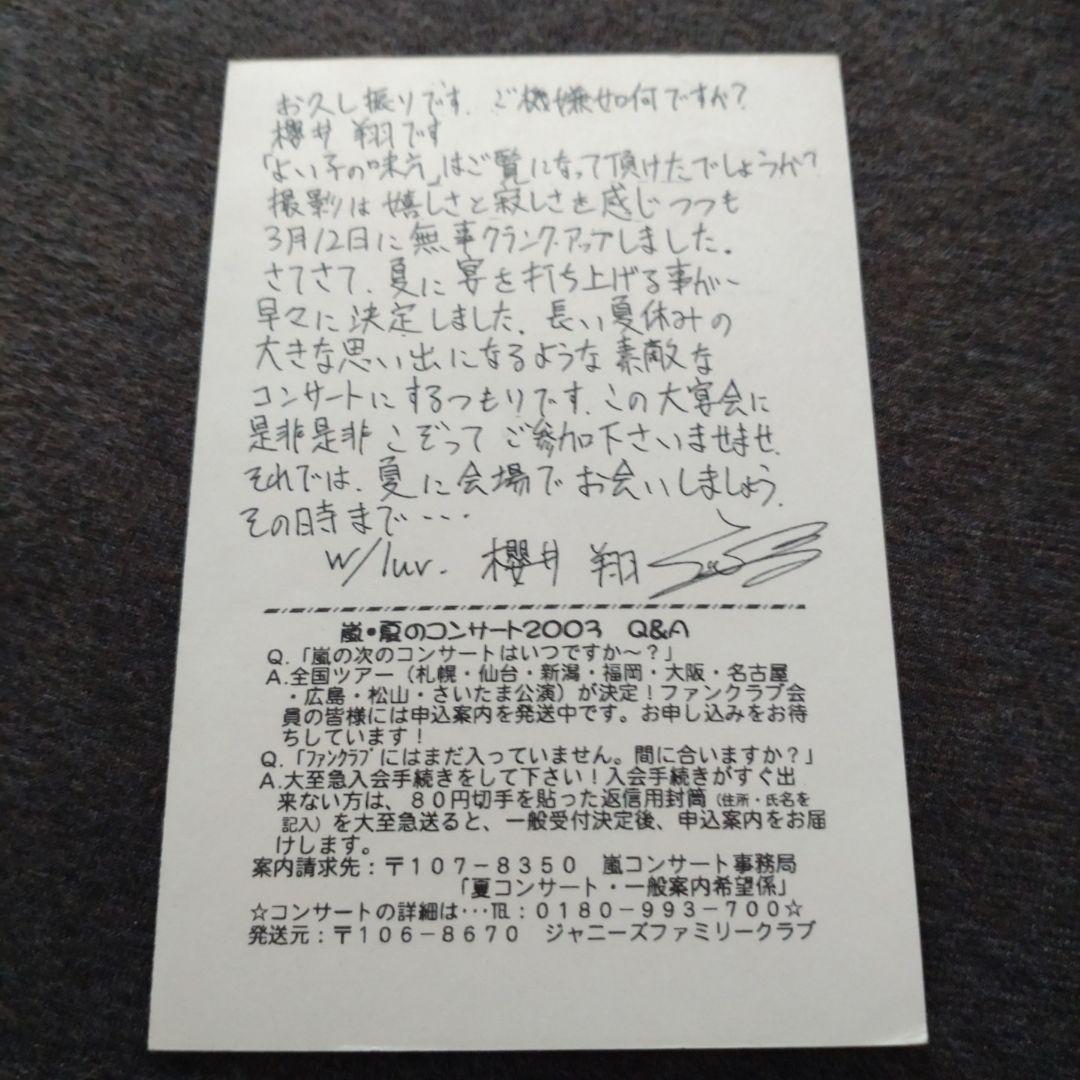 お久し振りです. ご機嫌如何ですか?
櫻井 翔です
「よい子の味方」はご覧になって頂けたでしょうか?
撮影は嬉しさと寂しさを感じつつも
3月12日に無事クランク・アップしました。
さてさて、夏に宴を打ち上げる事が〜
早々に決定しました. 長い夏休みの
大きな思い出になるような素敵な
コンサートにするつもりです. この大宴会に
是非是非こぞってご参加下さいませませ.
それでは、夏に会場でお会いしましょう.
その日寺まで・・・・
w/luv. 櫻井 翔
嵐・夏のコンサート2003 Q&A
Q.「嵐の次のコンサートはいつですか〜?」
A.全国ツアー(札幌・仙台・新潟・福岡・大阪・名古屋
・広島・松山・さいたま公演)が決定!ファンクラブ会
員の皆様には申込案内を発送中です。お申し込みをお待
ちしています!
Q.「ファンクラブにはまだ入っていません。間に合いますか?」
A.大至急入会手続きをして下さい!入会手続きがすぐ出
来ない方は、80円切手を貼った返信用封筒(住所・氏名を
記入)を大至急送ると、一般受付決定後、申込案内をお届
けします。
案内請求先:〒107-8350 嵐コンサート事務局
「夏コンサート・一般案内希望係」
☆コンサートの詳細は…℡:0180-993-700☆
発送元:〒106-8670 ジャニーズファミリークラブ